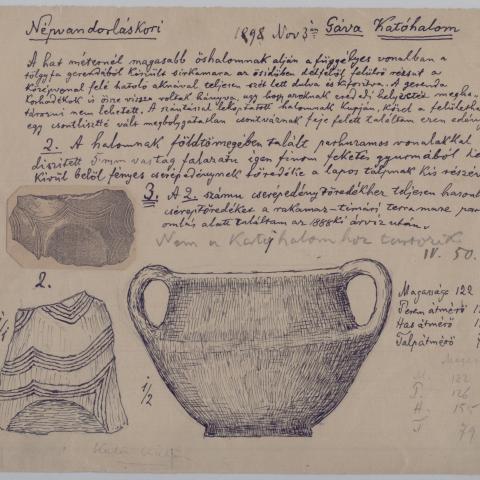 Népvándorláskori 1898 Nov 3án Gáva Katóhalom
A hat méternél magasabb őshalomnak alján a függélyes vonalban a
tölgyfa gerendából készült sirkamara az ősidőben délfelől felülről rézsut a
középvonal felé ható aknával teljesen szét lett dulva és kifosztva. A gerenda
korhadékok is össze vissza voltak hányva, ugy hogy azoknak eredeti helyzetét megha-
tározni nem lehetett. A szántással lekoptatott halomnak kupján, közel a felülethez
egy csontlisztté vált megbolygatatlan csontváznak feje felett találtam ezen edényt
2. A halomnak földtömegében talált párhuzamos vonalakkal
díszitett 5 mm vastag falazatu igen finom feketés gyurmából
Kivül belöl fényes cserépedénynek töredéke a lapos talpnak kis részével
3. A 2. számu cserépedény töredékhez teljesen hasonló
cseréptöredéket a rakamaz-timári terra mare part
omlás alatt találtam az 1888ki árvíz után.
Nem a Katóhalomhoz tartozik.
IV. 50.
2.
1/1
1/2
Magassága 122
Perem átmérő
Has átmérő
Talpátmérő
M. 122
P. 126
H. 155
T 79